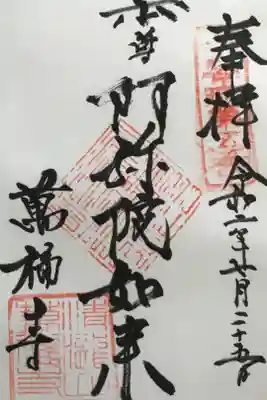 奉拝 令和二年七月二十五日
本尊 阿弥陀如来
萬福寺